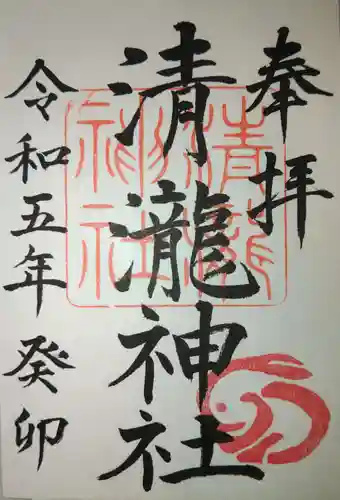 奉拝
清瀧神社
清瀧神社
令和五年 癸卯